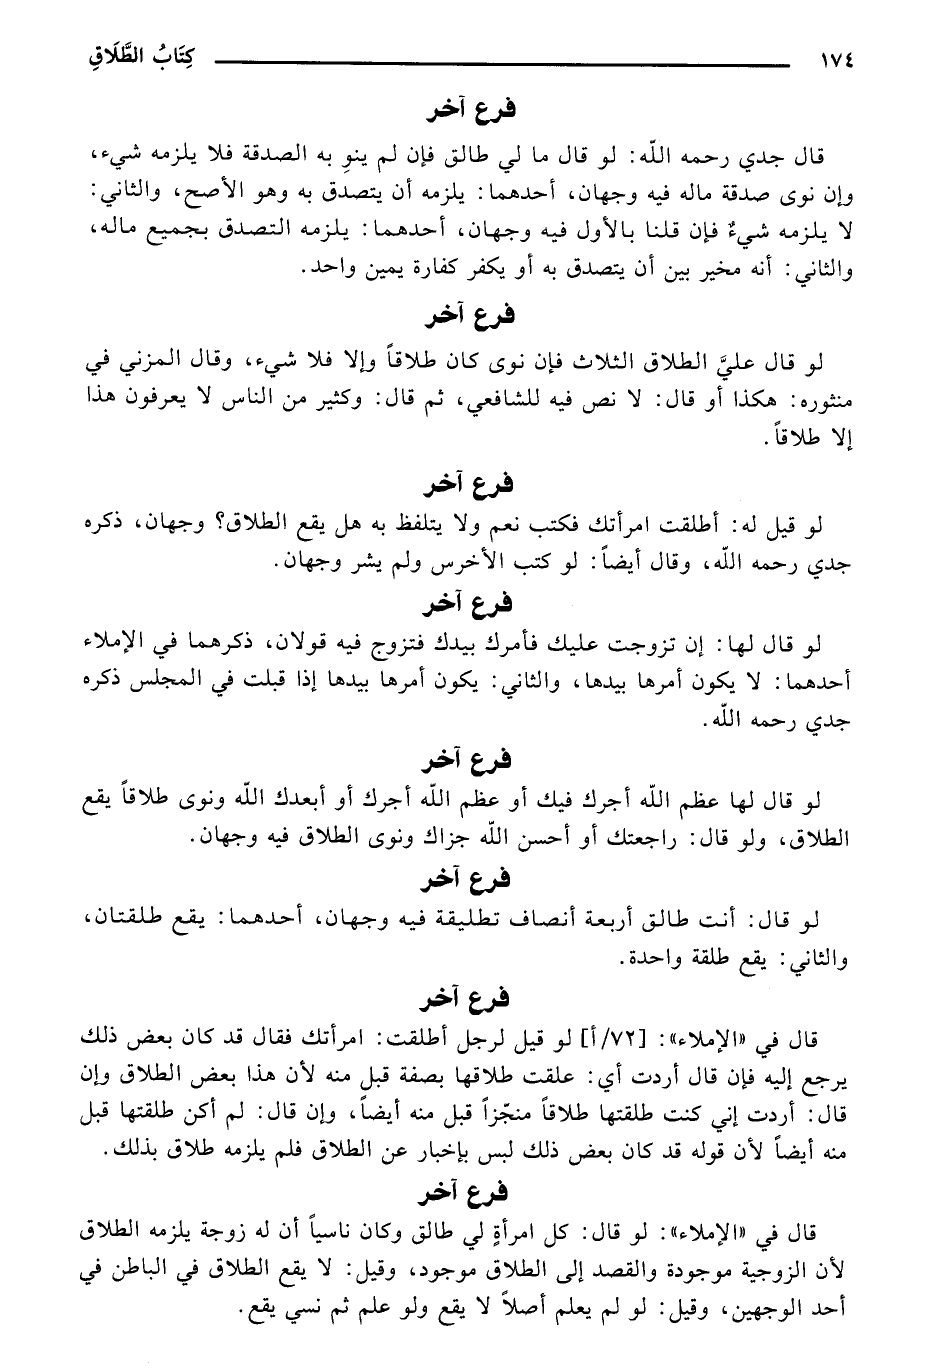 ١٧٤ كِتَابُ الطَّلَاقِ
فرع آخر
قال جدي رحمه اللّه: لو قال ما لي طالق فإن لم ينوِ به الصدقة فلا يلزمه شيء،
وإن نوى صدقة ماله فيه وجهان، أحدهما: يلزمه أن يتصدق به وهو الأصح، والثاني:
لا يلزمه شيءٌ فإن قلنا بالأول فيه وجهان، أحدهما: يلزمه التصدق بجميع ماله،
والثاني: أنه مخير بين أن يتصدق به أو يكفر كفارة يمين واحد.
فرع آخر
لو قال عليَّ الطلاق الثلاث فإن نوى كان طلاقاً وإلا فلا شيء، وقال المزني في
منثوره: هكذا أو قال: لا نص فيه للشافعي، ثم قال: وكثير من الناس لا يعرفون هذا
إلا طلاقاً.
فرع آخر
لو قيل له: أطلقت امرأتك فكتب نعم ولا يتلفظ به هل يقع الطلاق؟ وجهان، ذكره
جدي رحمه اللّه، وقال أيضاً: لو كتب الأخرس ولم يشر وجهان.
فرع آخر
لو قال لها: إن تزوجت عليك فأمرك بيدك فتزوج فيه قولان، ذكرهما في الإملاء
أحدهما: لا يكون أمرها بيدها، والثاني: يكون أمرها بيدها إذا قبلت في المجلس ذكره
جدي رحمه اللّه.
فرع آخر
لو قال لها عظم اللّه أجرك فيك أو عظم اللّه أجرك أو أبعدك اللّه ونوى طلاقاً يقع
الطلاق، ولو قال: راجعتك أو أحسن اللّه جزاك ونوى الطلاق فيه وجهان.
فرع آخر
لو قال: أنت طالق أربعة أنصاف تطليقة فيه وجهان، أحدهما: يقع طلقتان،
والثاني: يقع طلقة واحدة.
فرع آخر
قال في «الإملاء»: [٧٢/أ] لو قيل لرجل أطلقت: امرأتك فقال قد كان بعض ذلك
يرجع إليه فإن قال أردت أي: علقت طلاقها بصفة قبل منه لأن هذا بعض الطلاق وإن
قال: أردت إني كنت طلقتها طلاقاً منجّزاً قبل منه أيضاً، وإن قال: لم أكن طلقتها قبل
منه أيضاً لأن قوله قد كان بعض ذلك لبس بإخبار عن الطلاق فلم يلزمه طلاق بذلك.
فرع آخر
قال في «الإملاء»: لو قال: كل امرأةٍ لي طالق وكان ناسياً أن له زوجة يلزمه الطلاق
لأن الزوجية موجودة والقصد إلى الطلاق موجود، وقيل: لا يقع الطلاق في الباطن في
أحد الوجهين، وقيل: لو لم يعلم أصلاً لا يقع ولو علم ثم نسي يقع.